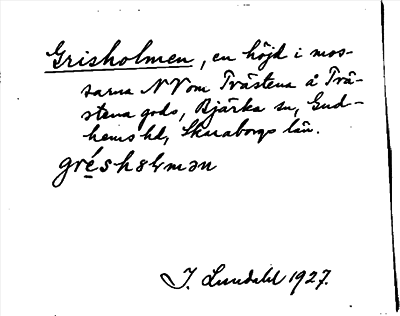 Grisholmen, en höjd i mos-
sarna NV om Trästena å Trä-
stena gods, Bjärka sn, Gud-
hems hd, Skaraborgs län.
grẹ́sholmən
I. Lundahl 1927.